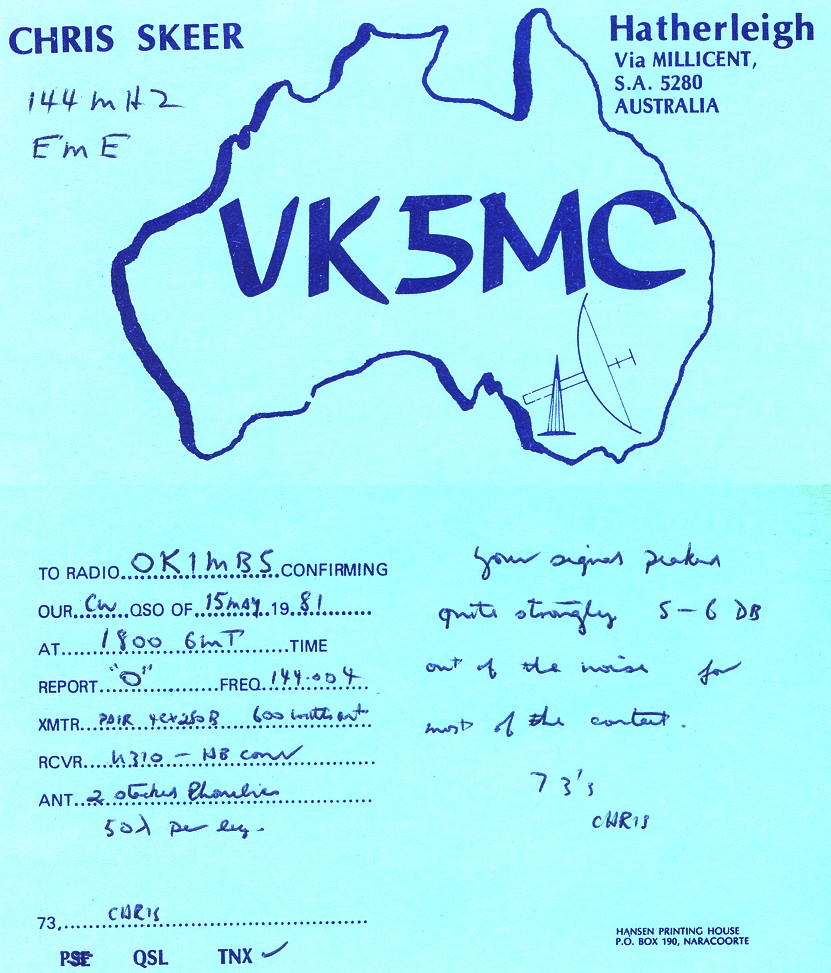 CHRIS SKEER
144 mHZ
EmE
Hatherleigh
Via MILLICENT,
S.A. 5280
AUSTRALIA
VK5MC
TO RADIO...OK1MBS...CONFIRMING
OUR...CW...QSO OF...15 may...19...81...
AT...1800 GmT...TIME
REPORT..."O"...FREQ...144.004
XMTR...PAIR 4CX250B 600 watts out
RCVR...U310 - HB conv
ANT...2 stacked Rhombics
50λ per leg.
73,...CHRIS
PSE QSL TNX ✓
your signal peaked
quite strongly 5-6 DB
out of the noise for
most of the contact.
73's
CHRIS
HANSEN PRINTING HOUSE
P.O. BOX 190, NARACOORTE